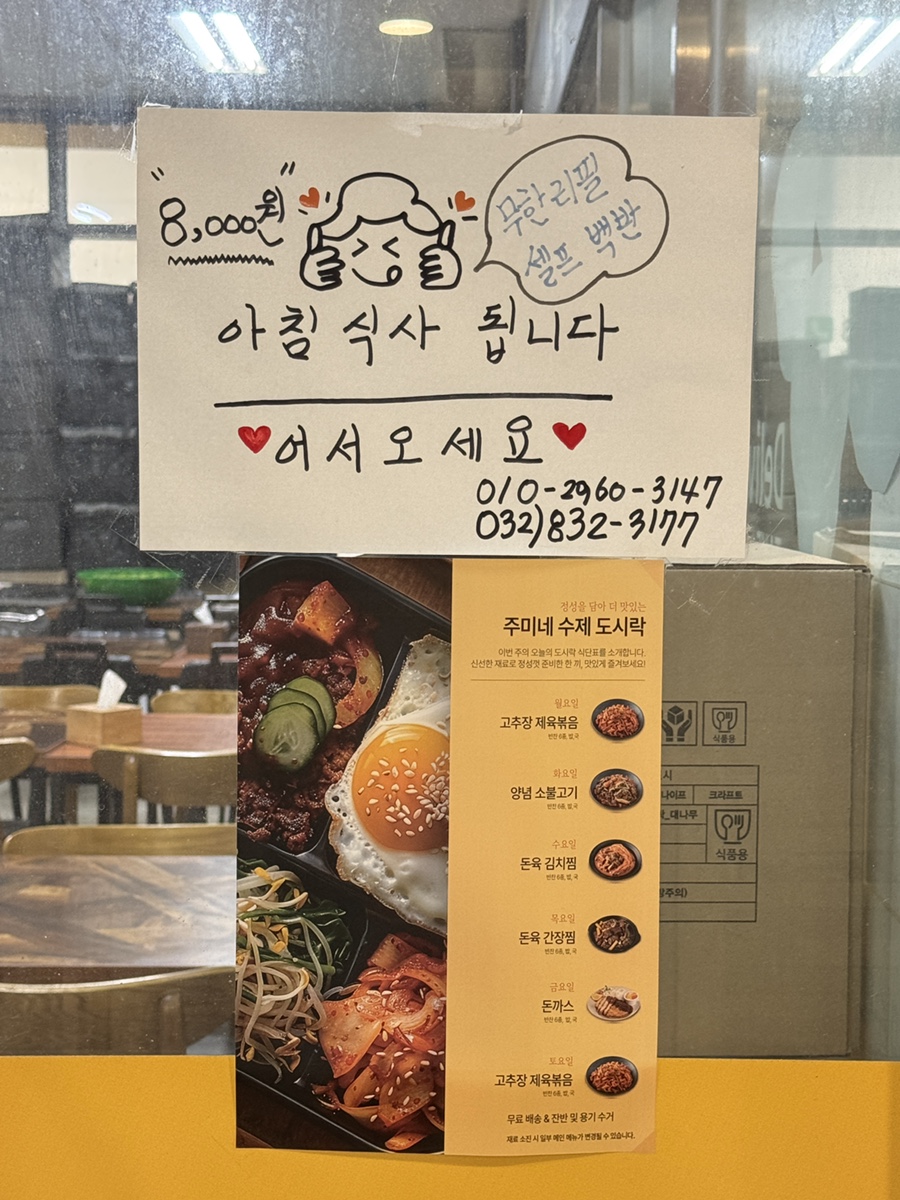 "8,000원"
무한리필
셀프 백반
아침 식사 됩니다
어서오세요
010-2960-3147
032)832-3177
정성을 담아 더 맛있는
주미네 수제 도시락
이번 주의 오늘의 도시락 식단표를 소개합니다.
신선한 재료로 정성껏 준비한 한 끼, 맛있게 즐겨보세요!
월요일
고추장 제육볶음
반찬 6종, 밥, 국
화요일
양념 소불고기
반찬 6종, 밥, 국
수요일
돈육 김치찜
반찬 6종, 밥, 국
목요일
돈육 간장찜
반찬 6종, 밥, 국
금요일
돈까스
반찬 6종, 밥, 국
토요일
고추장 제육볶음
반찬 6종, 밥, 국
무료 배송 & 잔반 및 용기 수거
재료 소진 시 일부 메인 메뉴가 변경될 수 있습니다.
식품용
시
나이프 크라프트
대나무
식품용
주의)